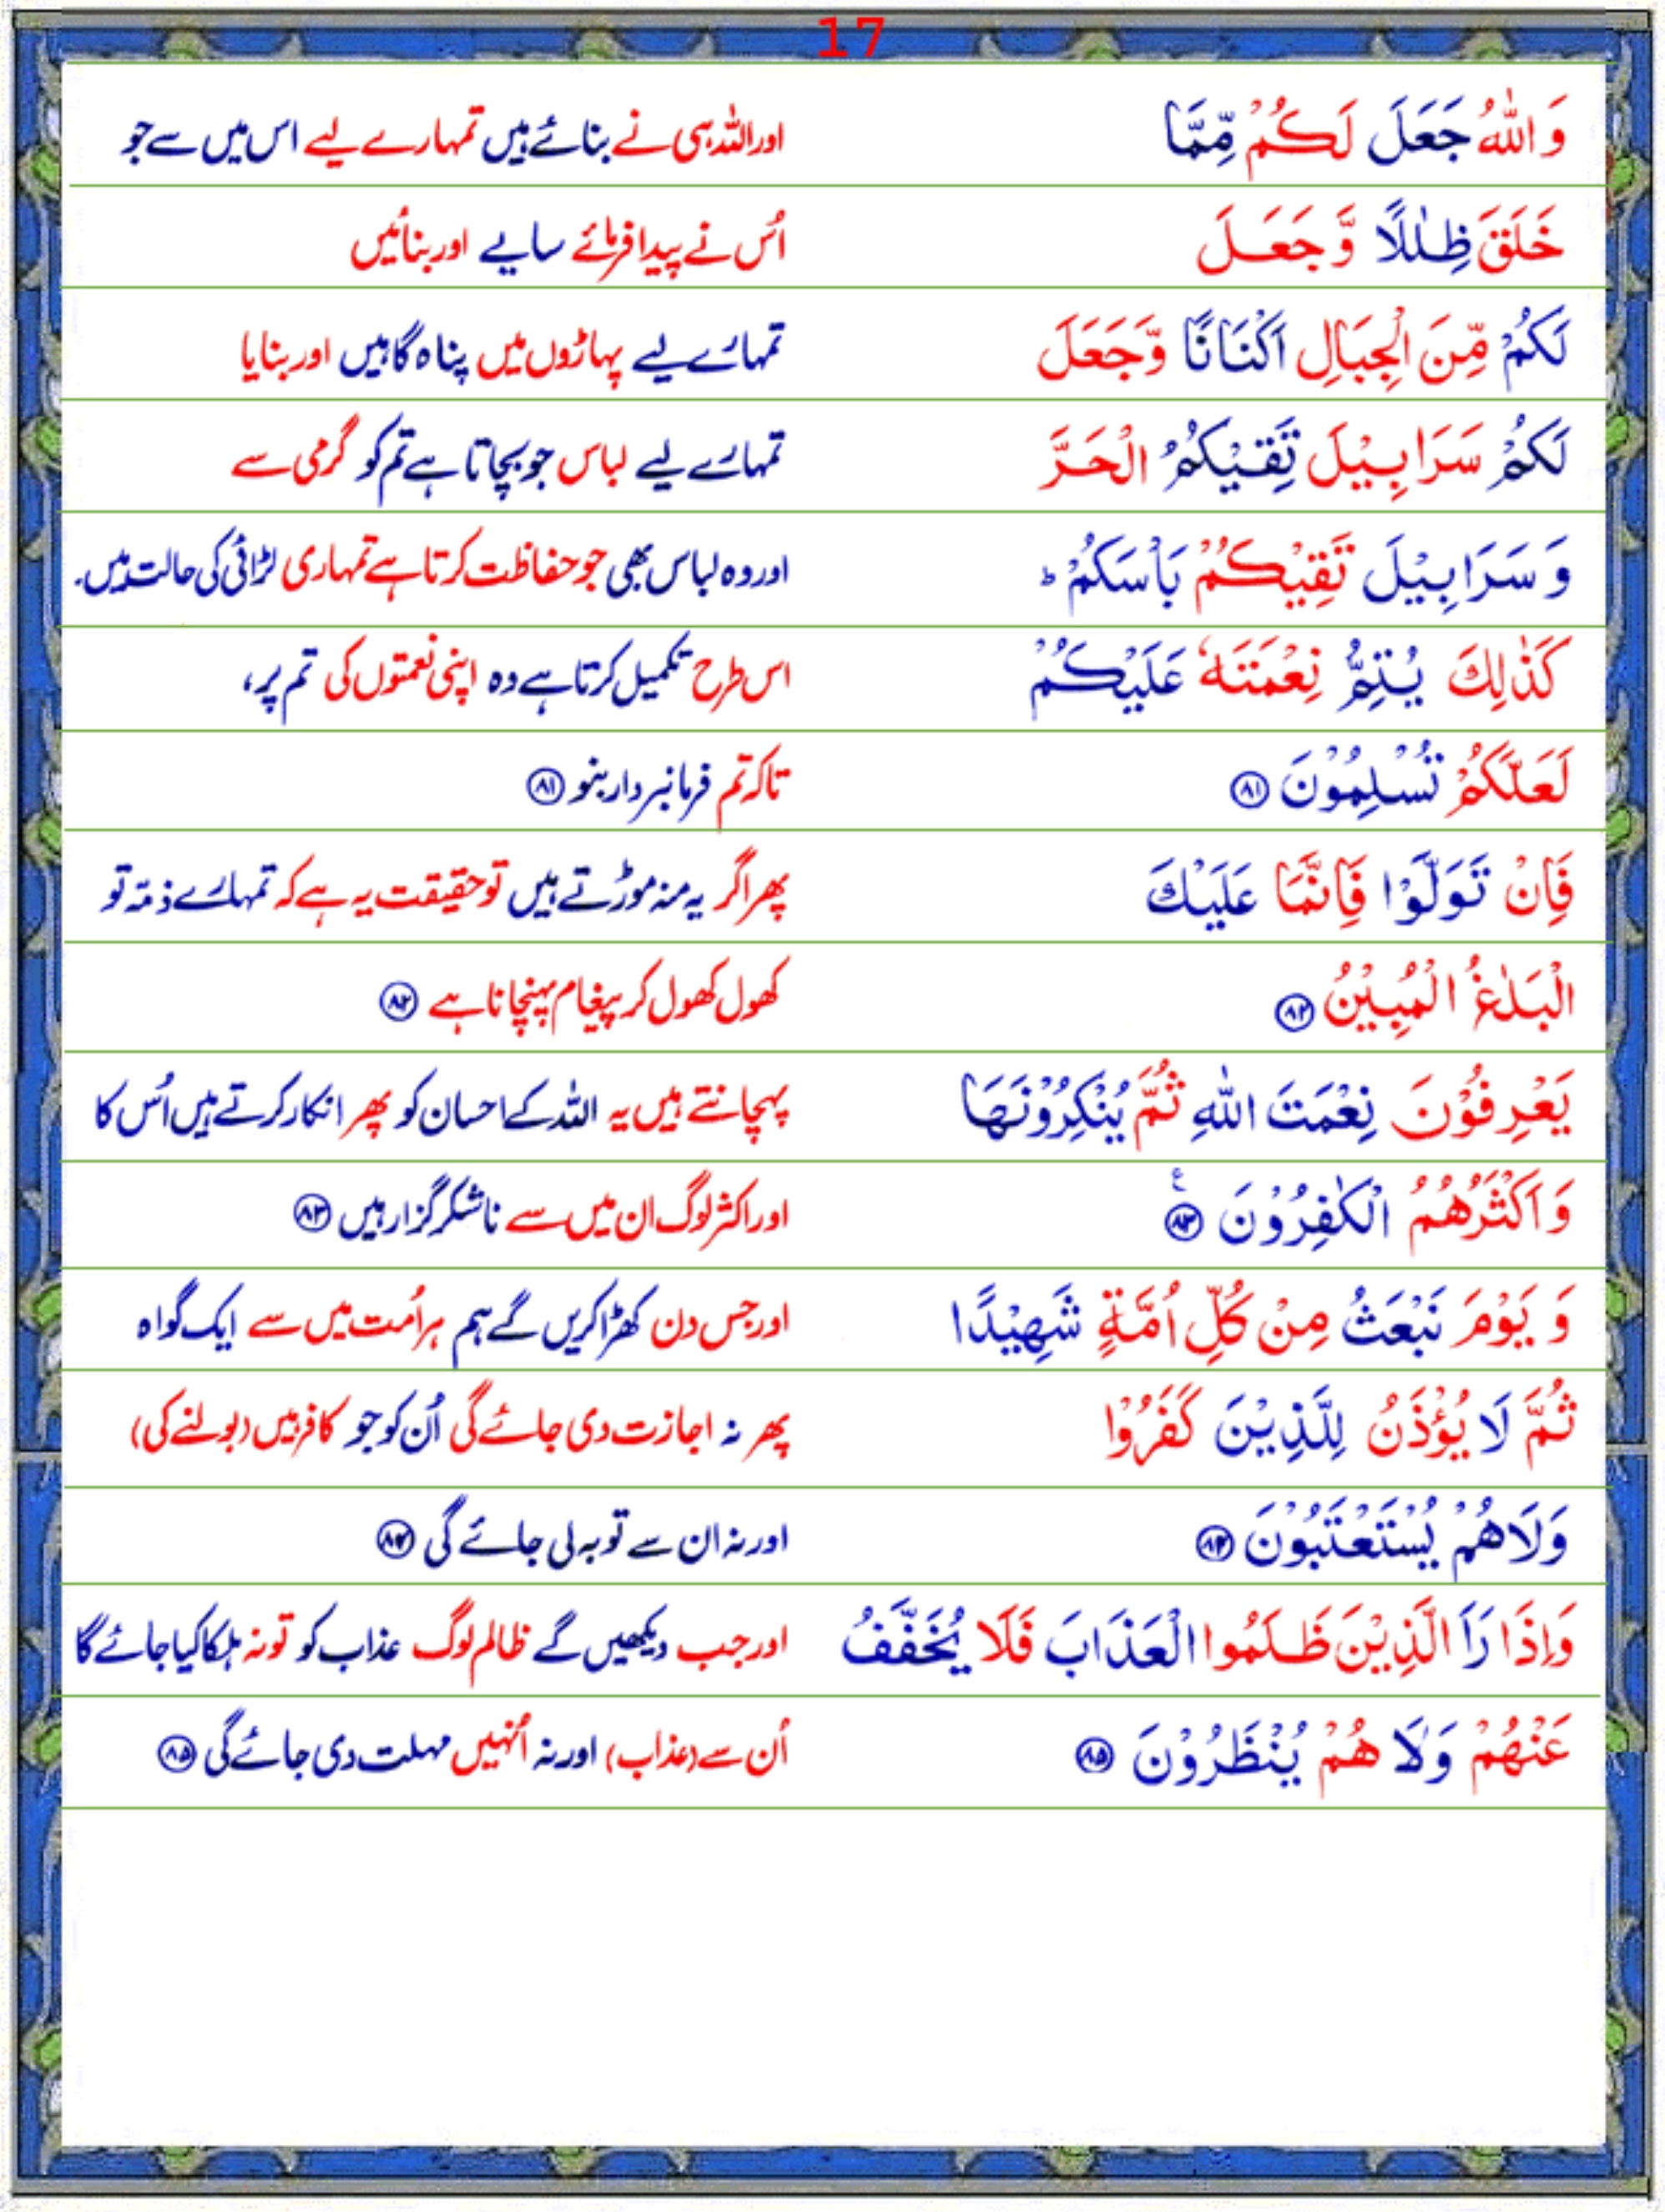 17
وَاللّٰهُ جَعَلَ لَكُمْ مِّمَّا اور اللہ ہی نے بنائے ہیں تمہارے لیے اس میں سے جو
خَلَقَ ظِلٰلًا وَّجَعَلَ اُس نے پیدا فرمائے سایے اور بنائیں
لَكُمْ مِّنَ الْجِبَالِ اَكْنَانًا وَّجَعَلَ تمہارے لیے پہاڑوں میں پناہ گاہیں اور بنایا
لَكُمْ سَرَابِيْلَ تَقِيْكُمُ الْحَرَّ تمہارے لیے لباس جو بچاتا ہے تم کو گرمی سے
وَسَرَابِيْلَ تَقِيْكُمْ بَاْسَكُمْ ؕ اور وہ لباس بھی جو حفاظت کرتا ہے تمہاری لڑائی کی حالت میں۔
كَذٰلِكَ يُتِمُّ نِعْمَتَهٗ عَلَيْكُمْ اس طرح تکمیل کرتا ہے وہ اپنی نعمتوں کی تم پر،
لَعَلَّكُمْ تُسْلِمُوْنَ ۸۱ تاکہ تم فرمانبردار بنو ۸۱
فَاِنْ تَوَلَّوْا فَاِنَّمَا عَلَيْكَ پھر اگر یہ منہ موڑتے ہیں تو حقیقت یہ ہے کہ تمہارے ذمّہ تو
الْبَلٰغُ الْمُبِيْنُ ۸۲ کھول کھول کر پیغام پہنچانا ہے ۸۲
يَعْرِفُوْنَ نِعْمَتَ اللّٰهِ ثُمَّ يُنْكِرُوْنَهَا پہچانتے ہیں یہ اللہ کے احسان کو پھر انکار کرتے ہیں اُس کا
وَاَكْثَرُهُمُ الْكٰفِرُوْنَ ۸۳ ع اور اکثر لوگ ان میں سے ناشکر گزار ہیں ۸۳
وَيَوْمَ نَبْعَثُ مِنْ كُلِّ اُمَّةٍ شَهِيْدًا اور جس دن کھڑا کریں گے ہم ہر اُمت میں سے ایک گواہ
ثُمَّ لَا يُؤْذَنُ لِلَّذِيْنَ كَفَرُوْا پھر نہ اجازت دی جائے گی اُن کو جو کافر ہیں (بولنے کی)
وَلَا هُمْ يُسْتَعْتَبُوْنَ ۸۴ اور نہ ان سے توبہ لی جائے گی ۸۴
وَاِذَا رَاَ الَّذِيْنَ ظَلَمُوا الْعَذَابَ فَلَا يُخَفَّفُ اور جب دیکھیں گے ظالم لوگ عذاب کو تو نہ ہلکا کیا جائے گا
عَنْهُمْ وَلَا هُمْ يُنْظَرُوْنَ ۸۵ اُن سے (عذاب) اور نہ اُنہیں مہلت دی جائے گی ۸۵